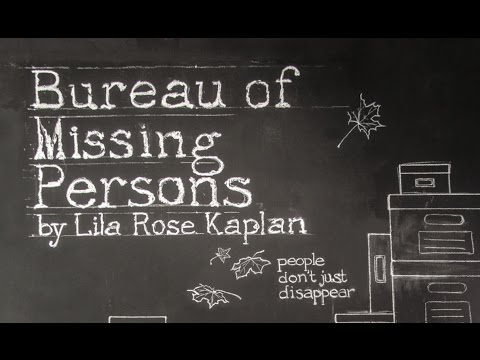 Bureau of
Missing
Persons
by Lila Rose Kaplan
people
don't just
disappear